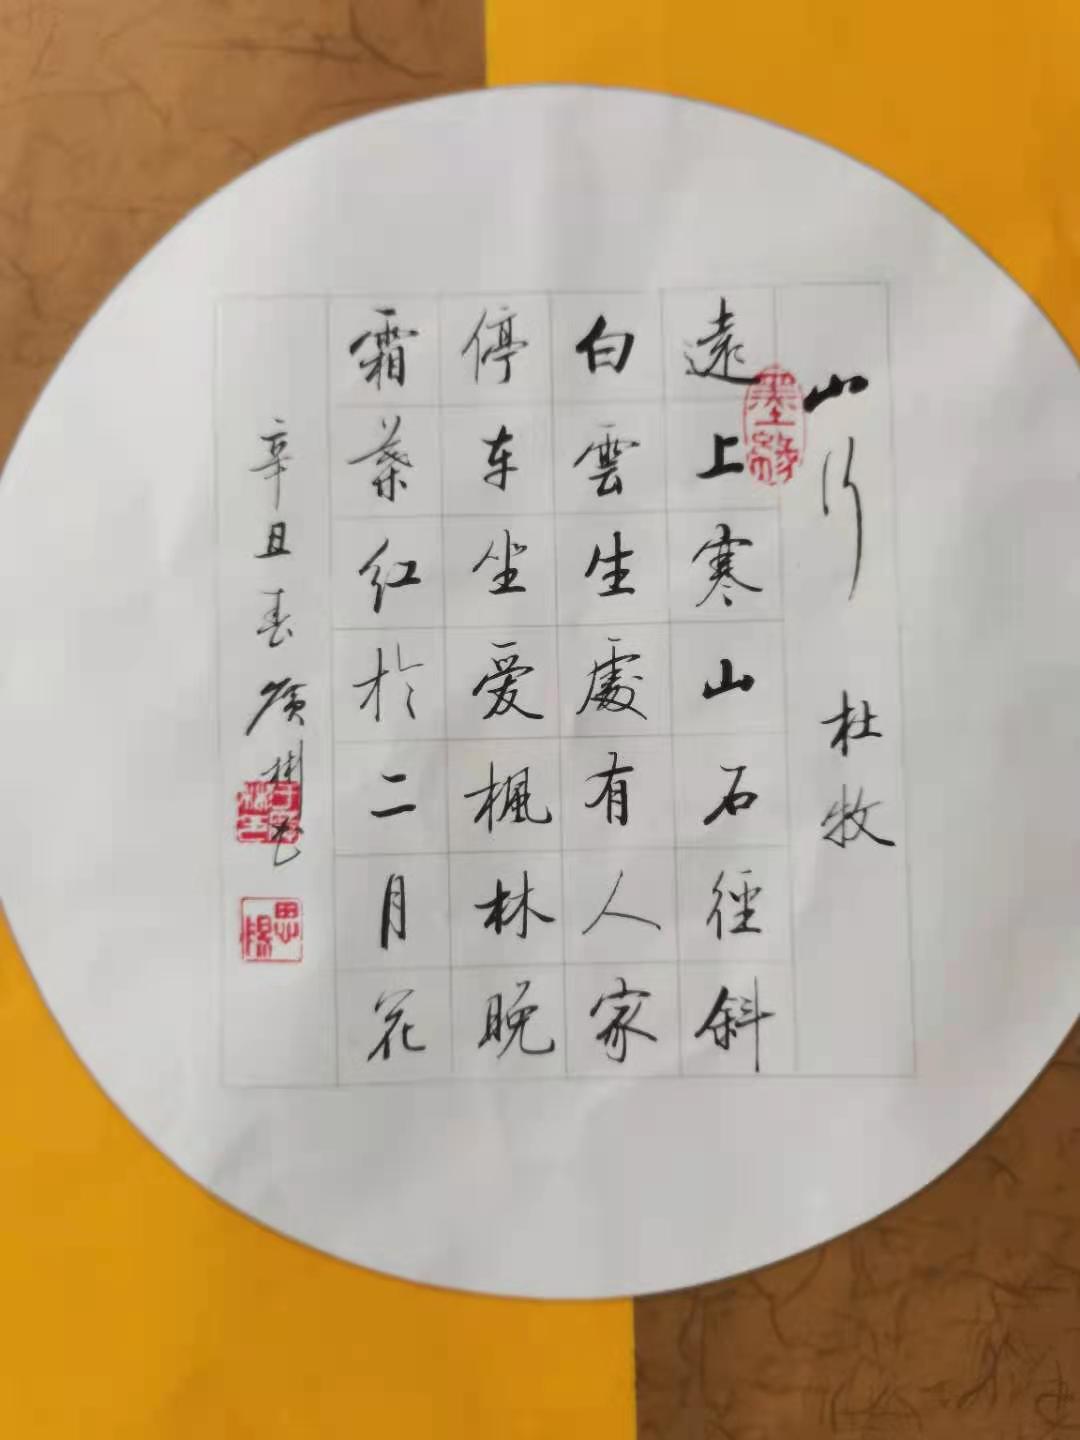 山行 杜牧
遠上寒山石徑斜
白雲生處有人家
停车坐爱楓林晚
霜葉红於二月花
辛丑春廣彬书
墨緣